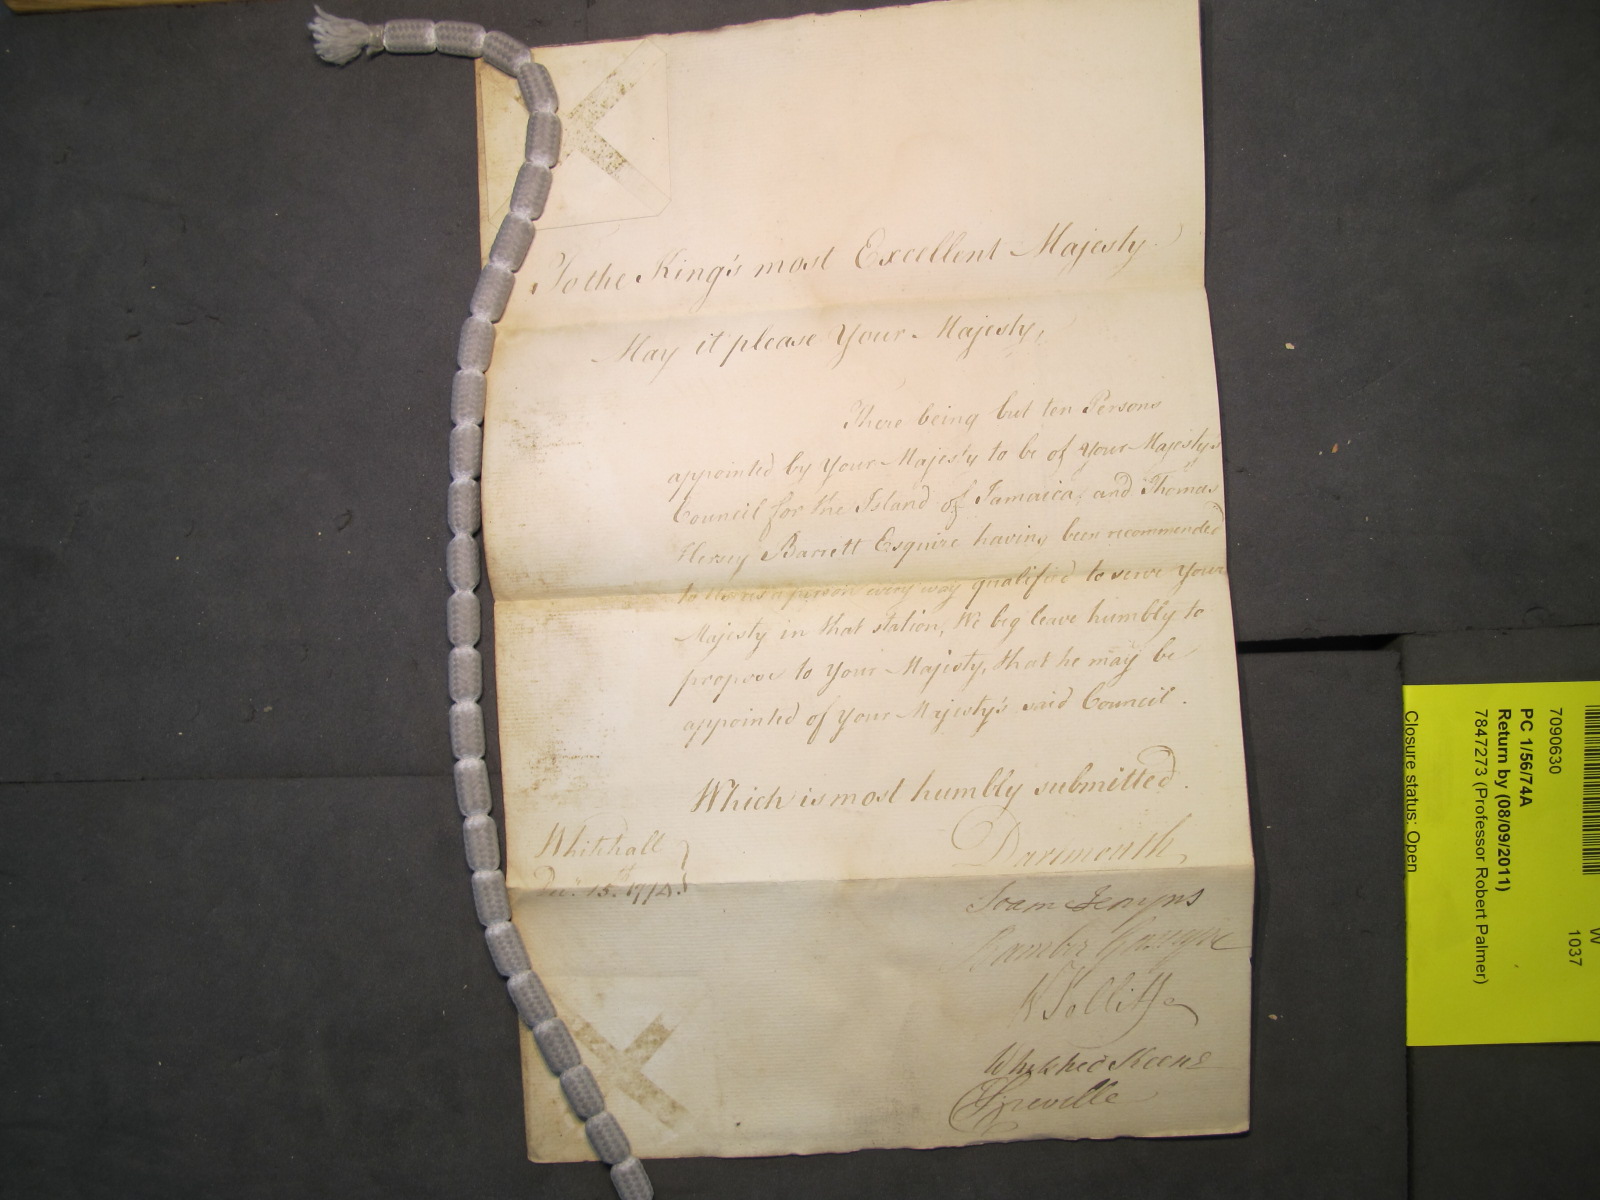 To the King's most Excellent Majesty
May it please Your Majesty,
There being but ten Persons
appointed by Your Majesty to be of Your Majesty's
Council for the Island of Jamaica, and Thomas
Hersey Barrett Esquire having been recommended
to Us as a person every way qualified to serve Your
Majesty in that station, We beg leave humbly to
propose to Your Majesty, that he may be
appointed of Your Majesty's said Council.
Which is most humbly submitted.
Whitehall
Decr. 15th. 1774.
Dartmouth
Soame Jenyns
Bamber Gascoyne
W Jolliffe
Whitshed Keene
C Greville
W
1037
7090630
PC 1/56/74A
Return by (08/09/2011)
7847273 (Professor Robert Palmer)
Closure status: Open